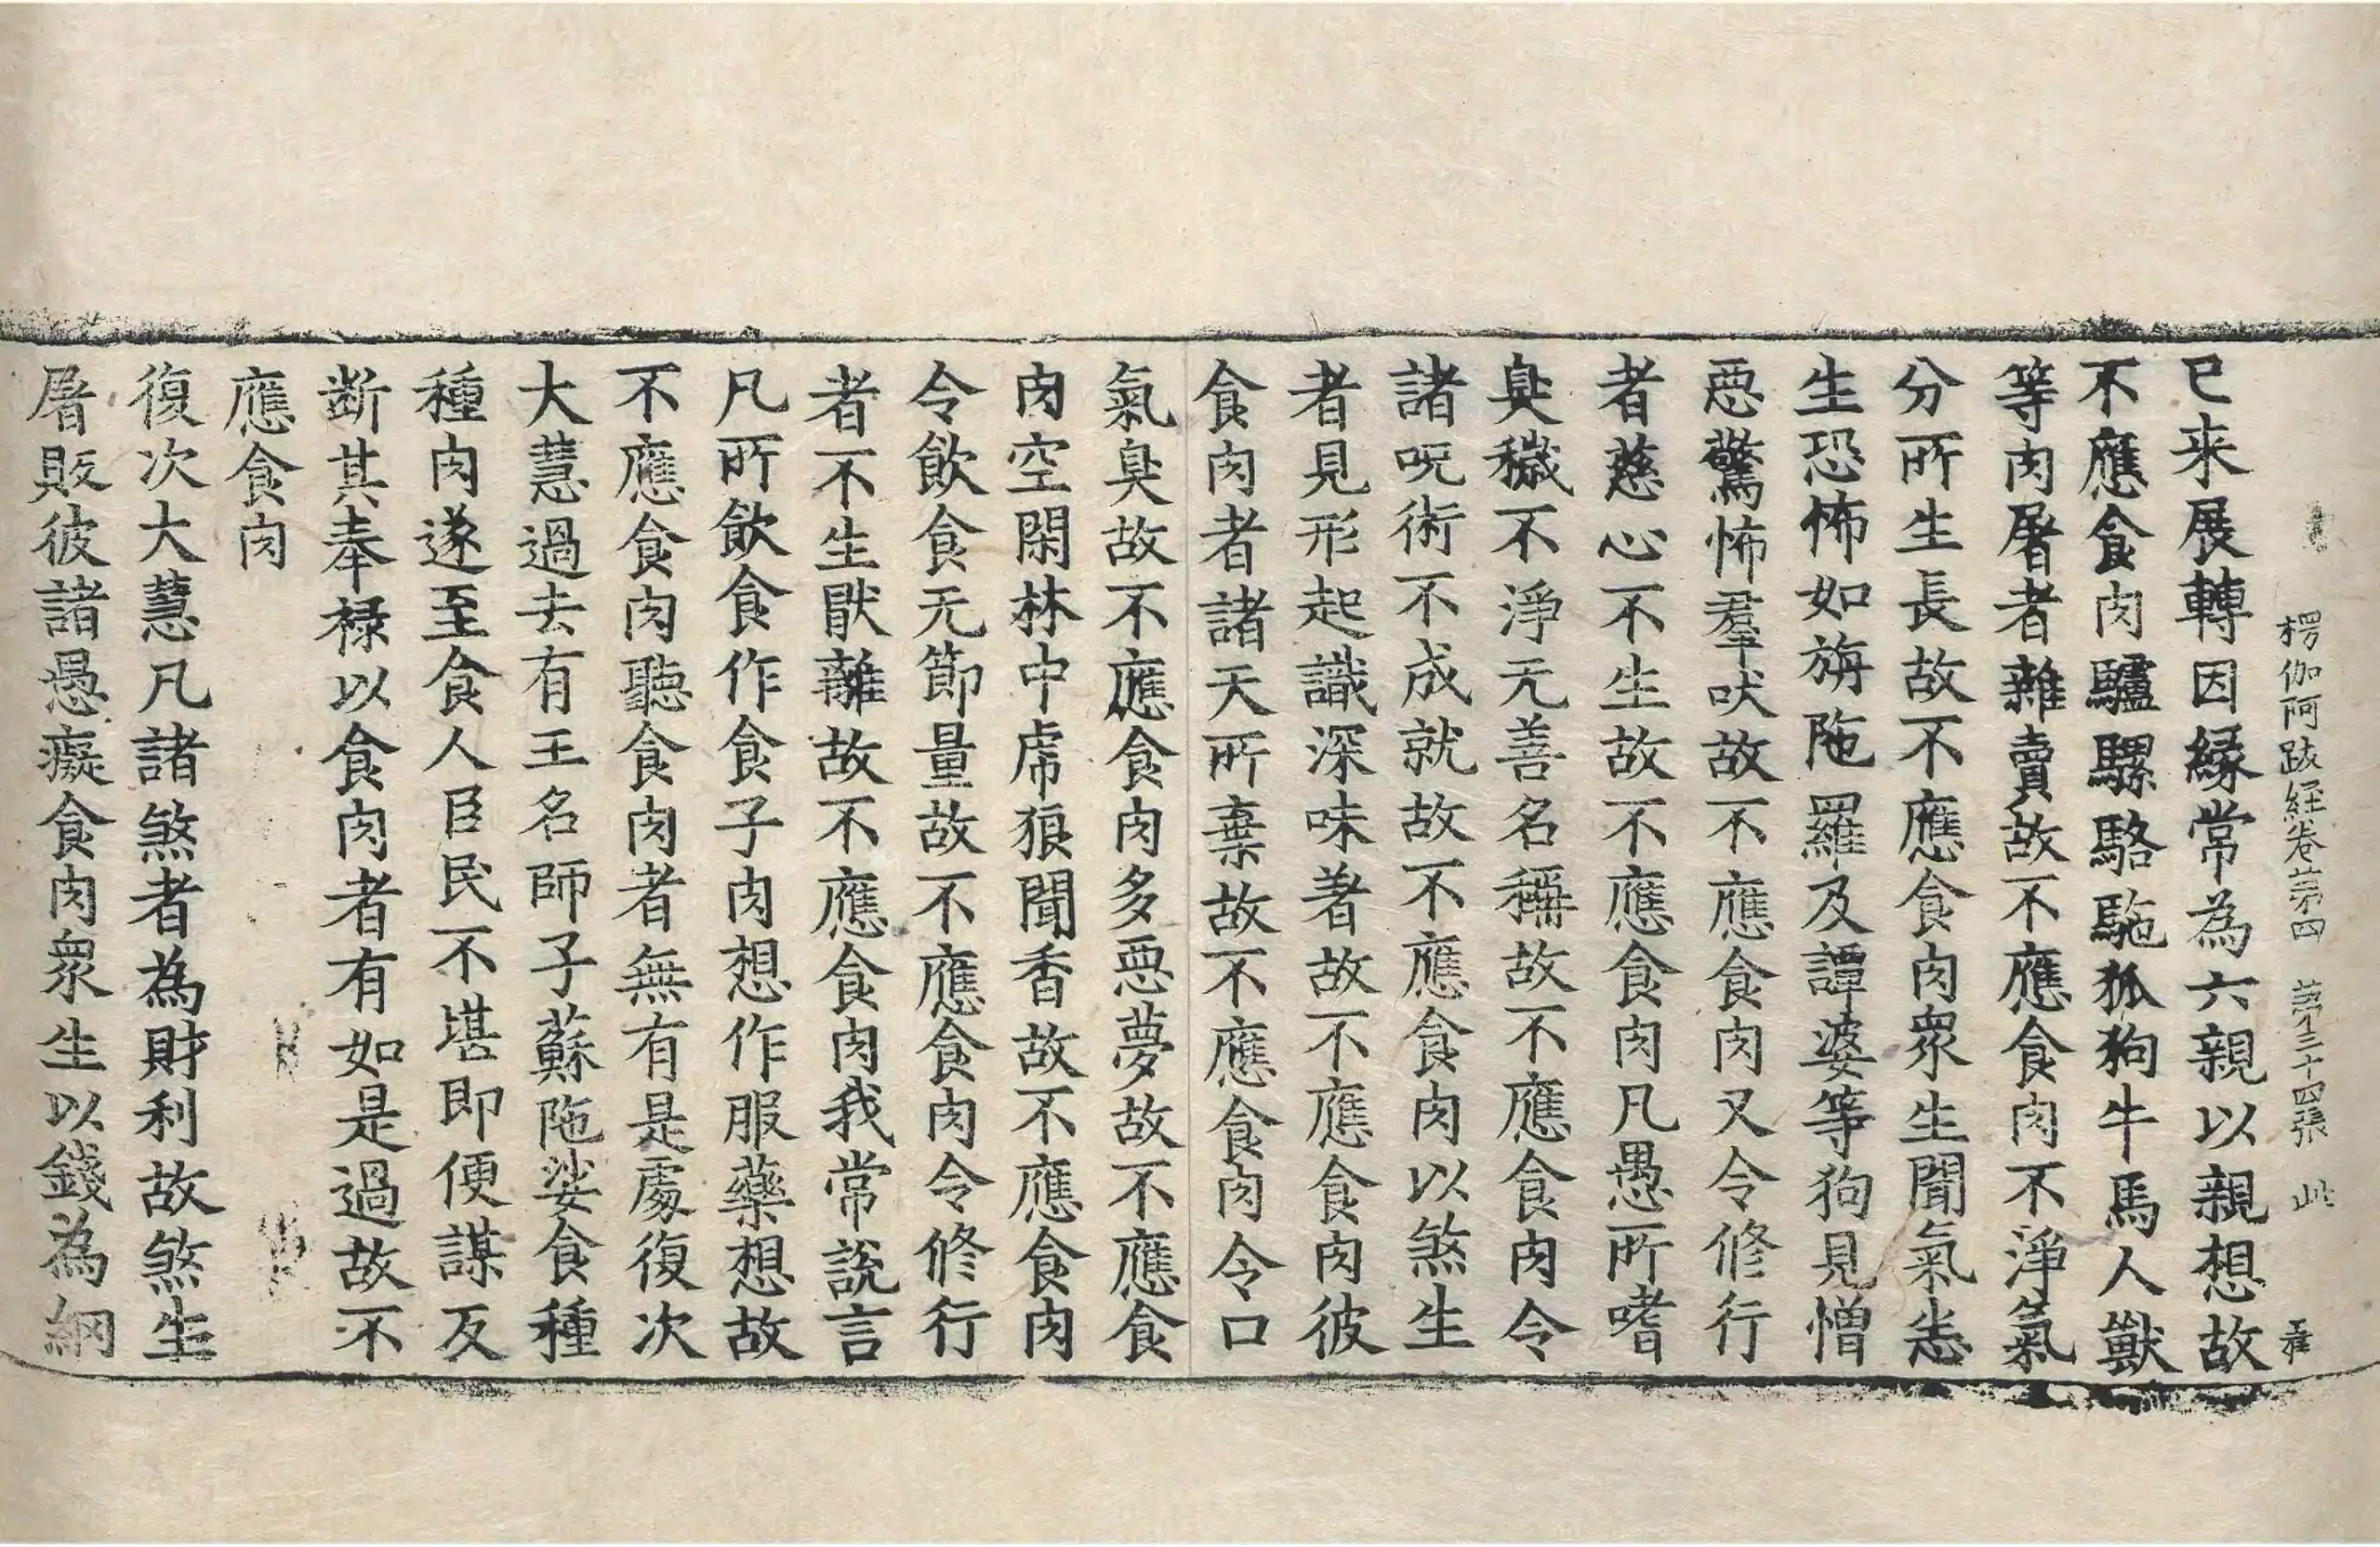 楞伽阿跋経卷第四　第三十四張　此
已来展轉因縁常為六親以親想故
不應食肉驢騾駱駞狐狗牛馬人獸
等肉屠者雜賣故不應食肉不淨氣
分所生長故不應食肉衆生聞氣悉
生恐怖如旃陁羅及譚婆等狗見憎
惡驚怖羣吠故不應食肉又令修行
者慈心不生故不應食肉凡愚所嗜
臭穢不淨无善名稱故不應食肉令
諸呪術不成就故不應食肉以煞生
者見形起識深味著故不應食肉彼
食肉者諸天所棄故不應食肉令口
氣臭故不應食肉多惡夢故不應食
肉空閑林中虎狼聞香故不應食肉
令飲食无節量故不應食肉令修行
者不生猒離故不應食肉我常說言
凡所飲食作食子肉想作服藥想故
不應食肉聽食肉者無有是處復次
大慧過去有王名師子蘇陁娑食種
種肉遂至食人臣民不堪即便謀反
断其奉禄以食肉者有如是過故不
應食肉
復次大慧凡諸煞者為財利故煞生
屠販彼諸愚癡食肉衆生以錢為網